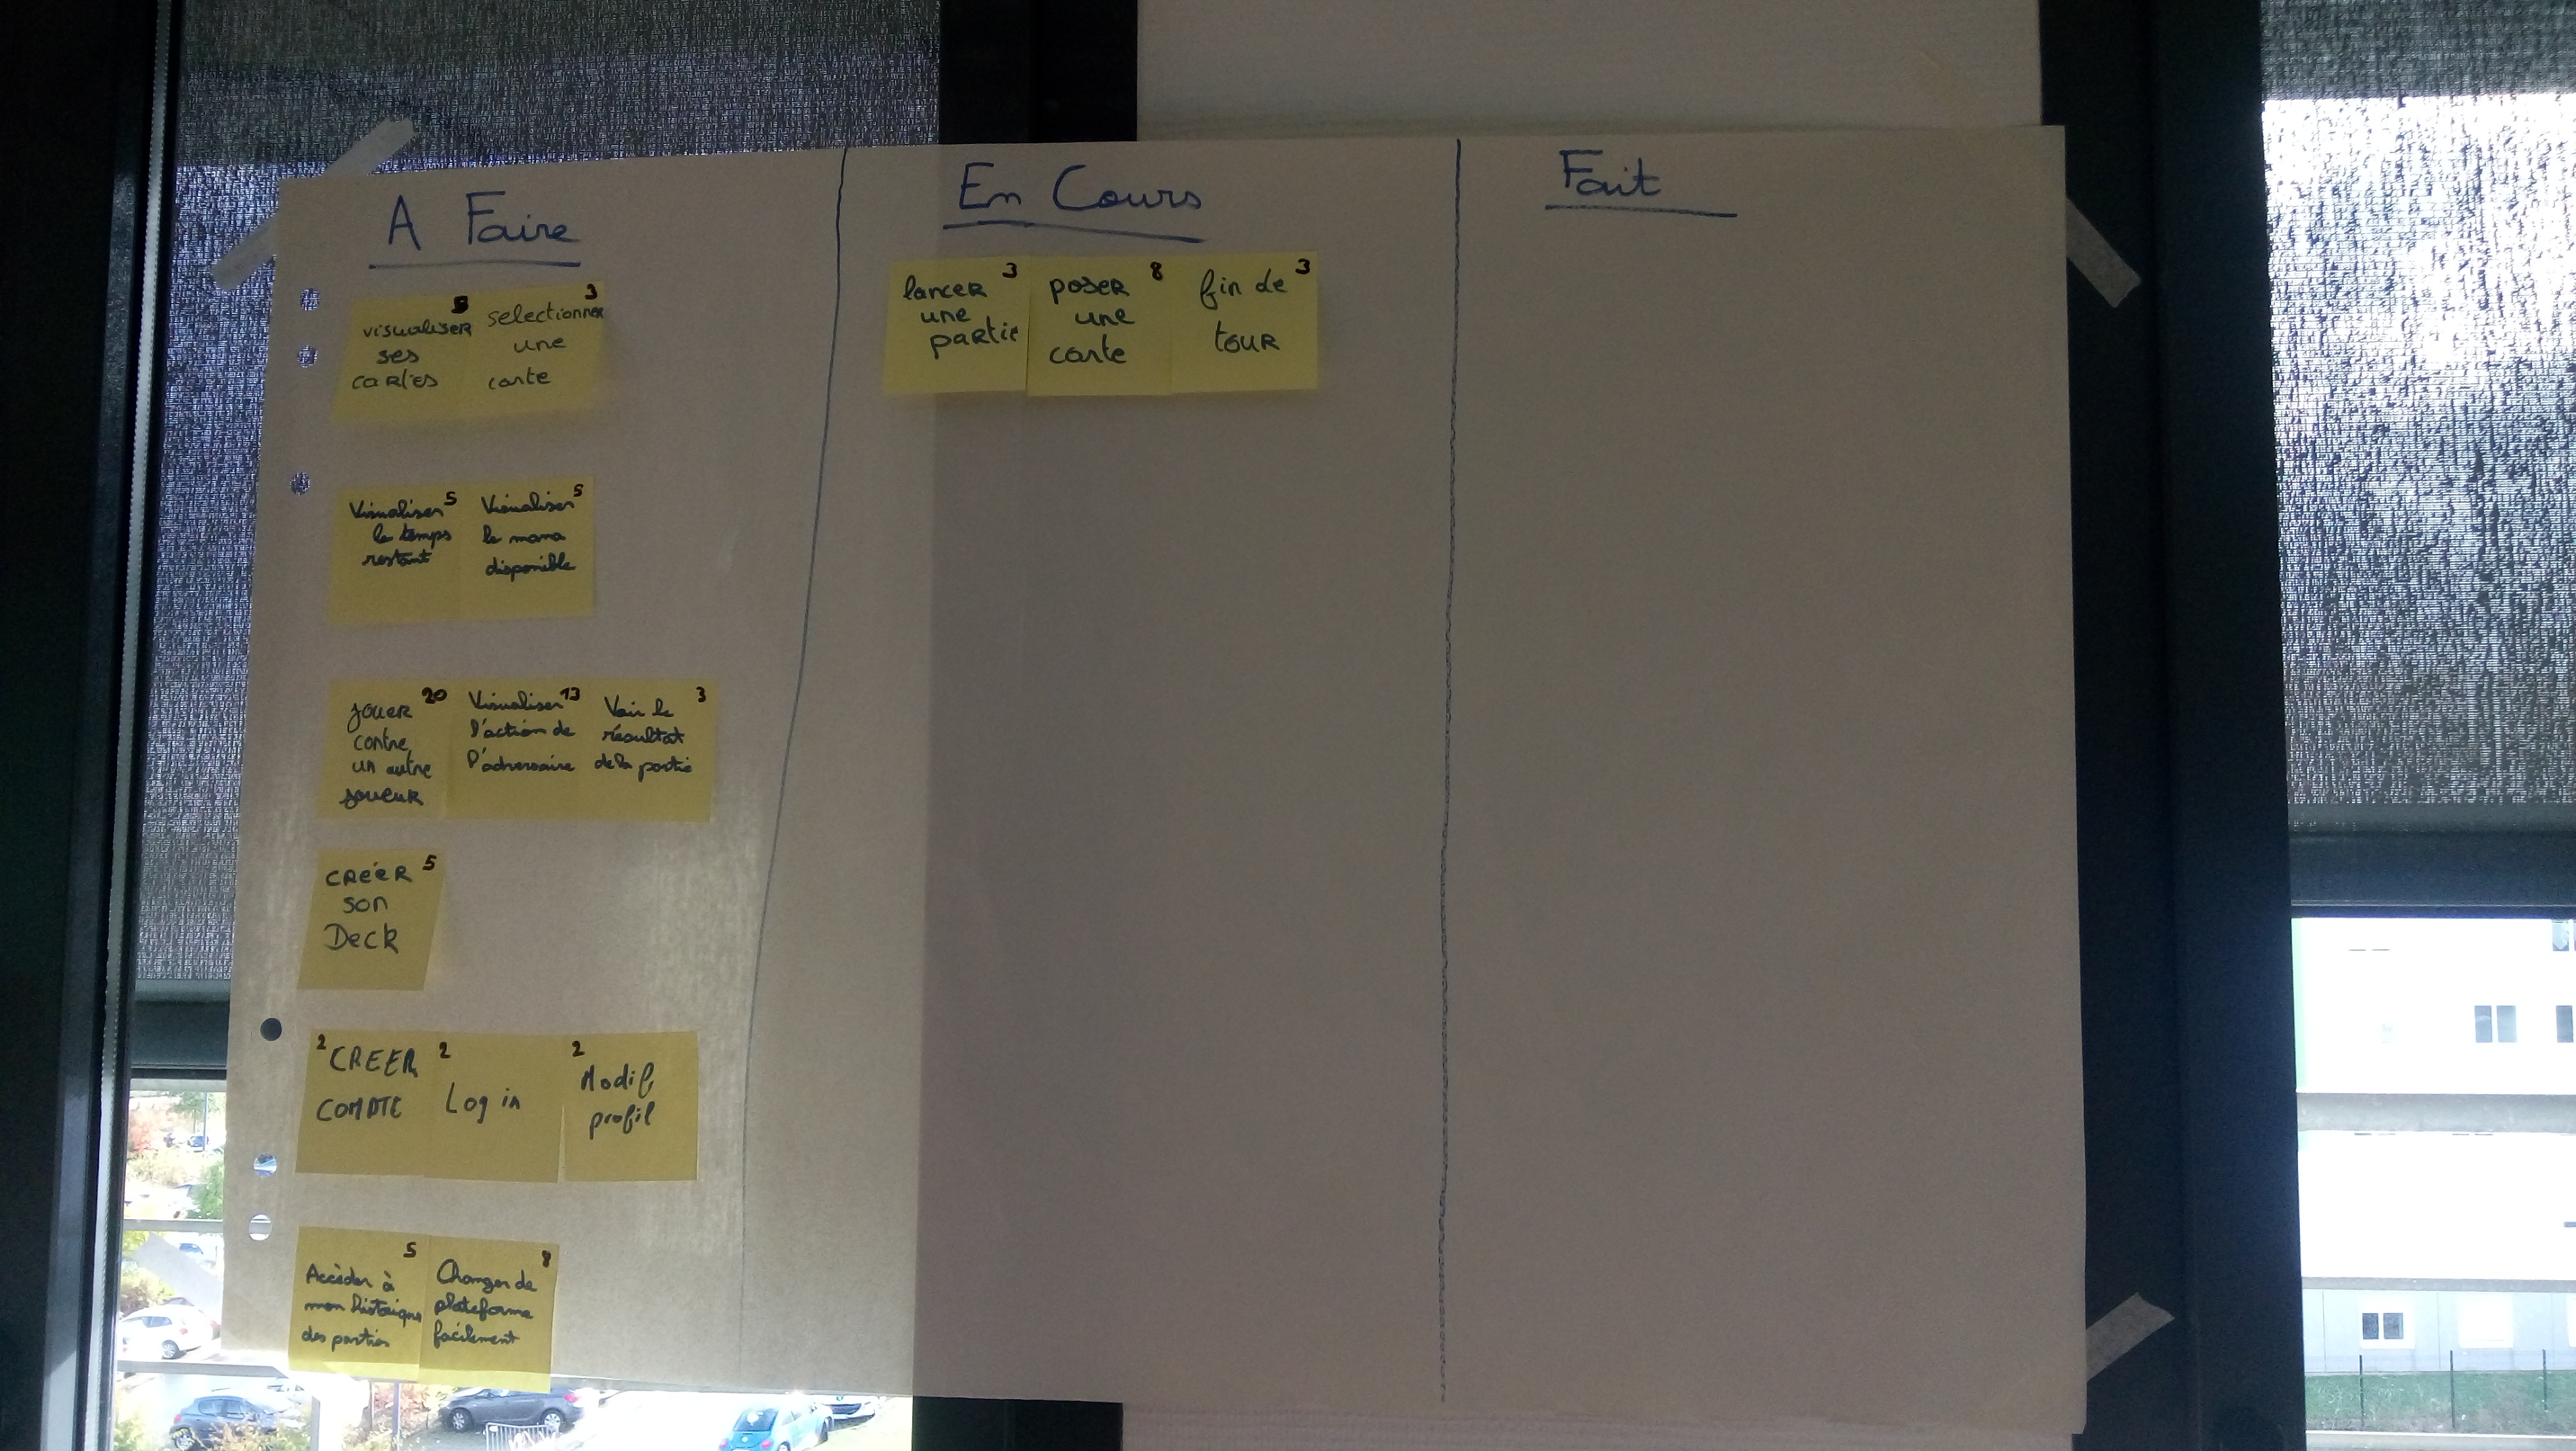 A Faire
visualiser
ses
cartes
3
selectionner
une
carte
5
Visualiser
le temps
restant
5
Visualiser
le mana
disponible
20
jouer
contre
un autre
joueur
13
Visualiser
l'action de
l'adversaire
3
Voir le
résultat
de la partie
5
CRéER
son
Deck
2
CREER
COMPTE
2
Log in
2
Modif
profil
5
Accèder à
mon historique
des parties
8
Changer de
plateforme
facilement
En Cours
3
lancer
une
partie
8
poser
une
carte
3
fin de
tour
Fait